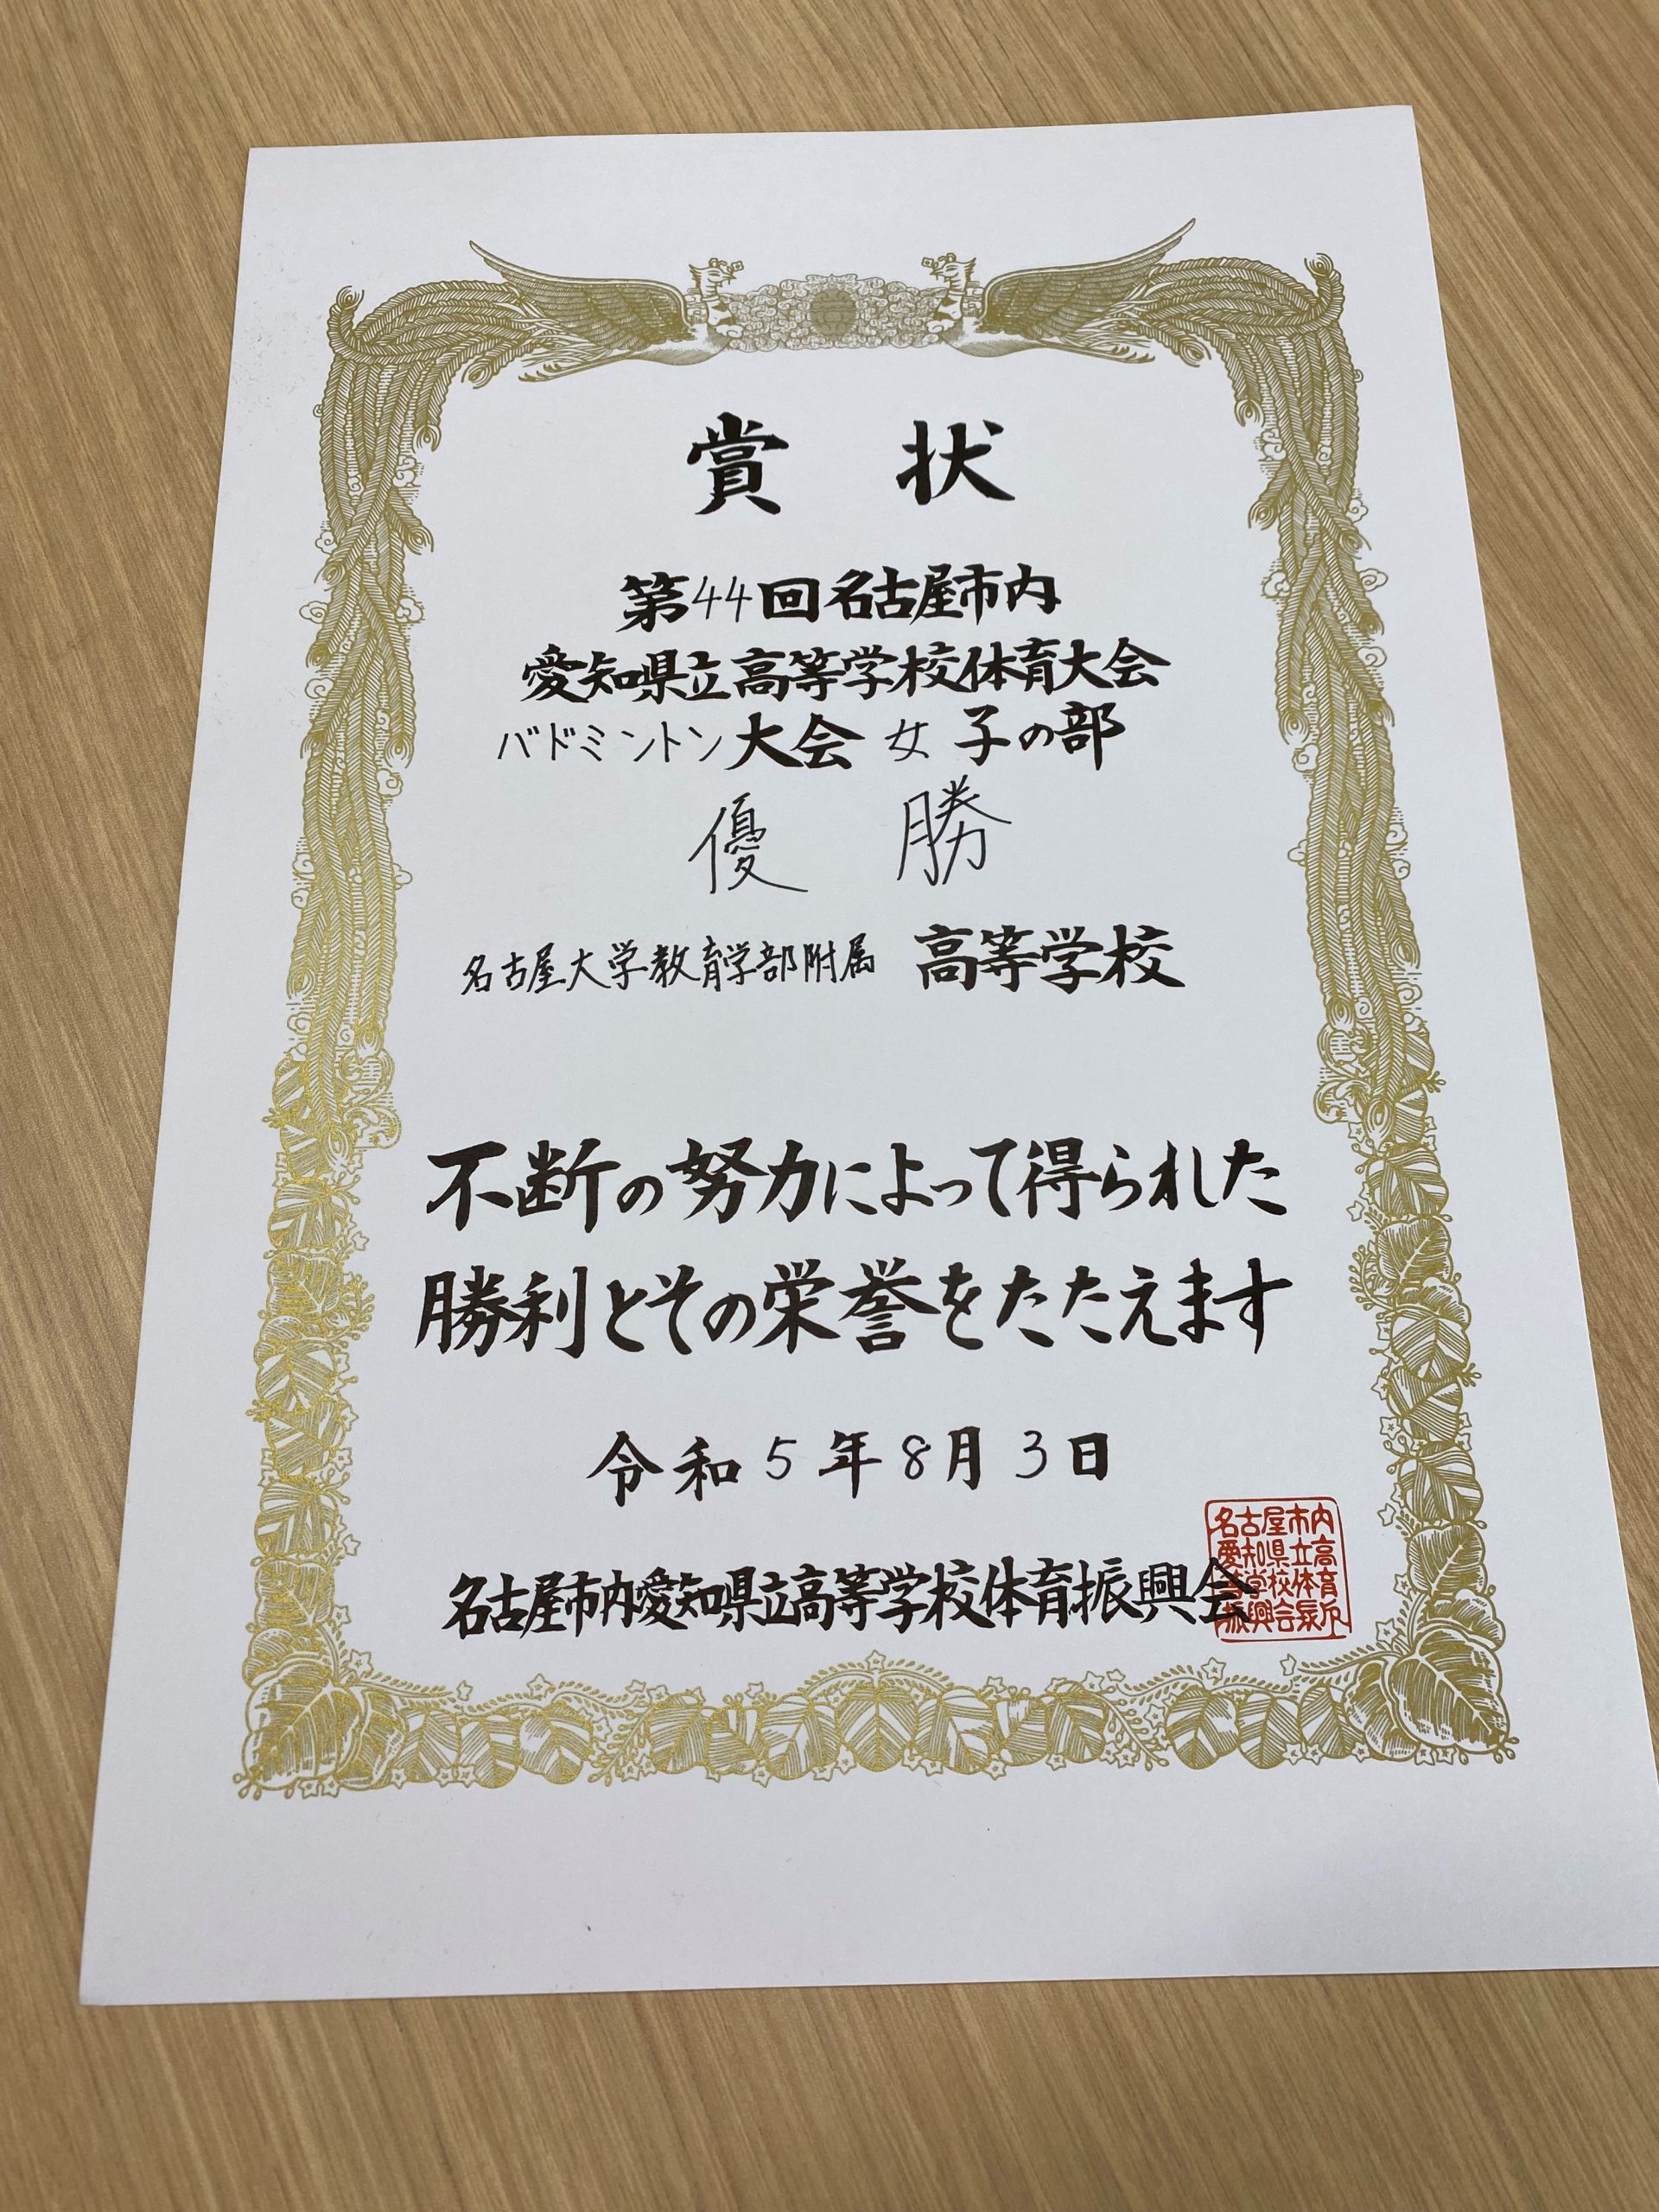 賞状
第44回名古屋市内
愛知県立高等学校体育大会
バドミントン大会 女子の部
優勝
名古屋大学教育学部附属 高等学校
不断の努力によって得られた
勝利とその栄誉をたたえます
令和5年8月3日
名古屋市内愛知県立高等学校体育振興会
名古屋市内
愛知県立高
等学校体育
振興会